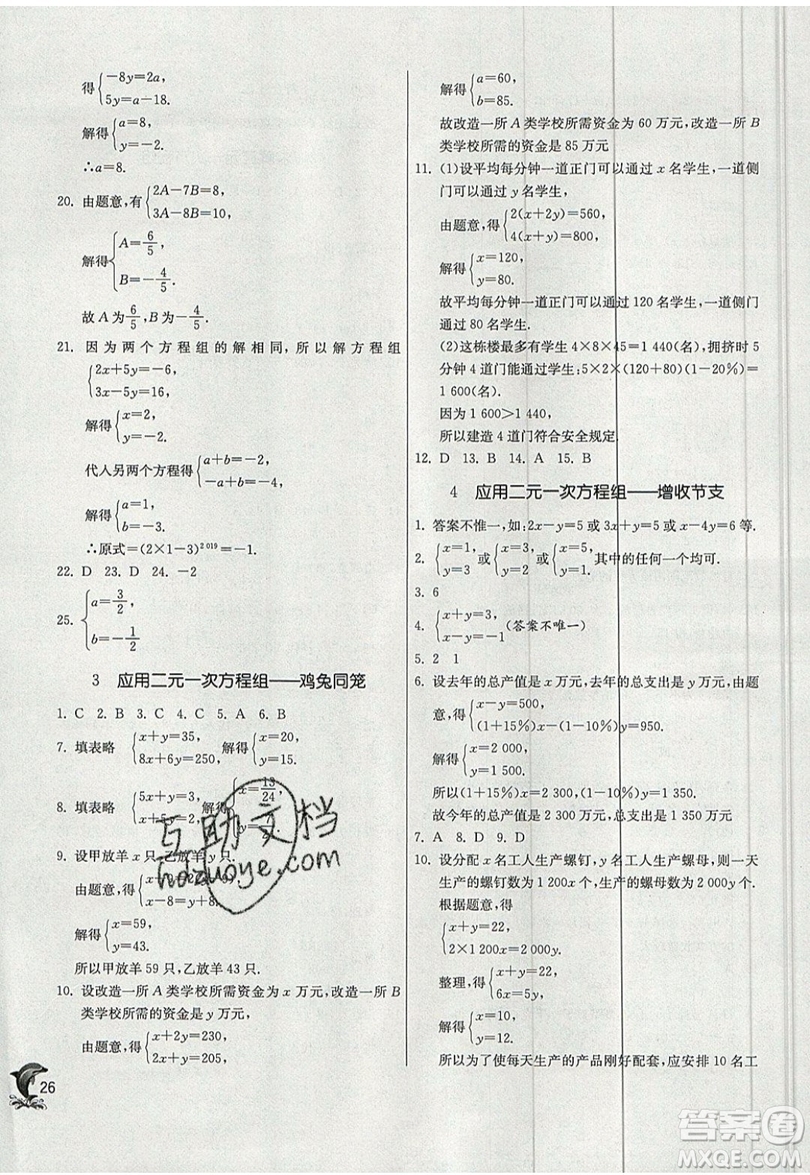 得{-8y=2a,
5y=a-18.
解得{a=8,
y=-2.
∴a=8.
20. 由题意,有{2A-7B=8,
3A-8B=10,
解得{A=6/5,
B=-4/5.
故 A 为6/5,B 为-4/5.
21. 因为两个方程组的解相同,所以解方程组
{2x+5y=-6,
3x-5y=16,
解得{x=2,
y=-2.
代人另两个方程得{a+b=-2,
-a+b=-2,
解得{a=1,
b=-1.
∴原式=(2×1-3)^2 019=-1.
22. D 23. D 24. -2
25. {a=3/2,
b=-1/2
3 应用二元一次方程组——鸡兔同笼
1. C 2. B 3. C 4. C 5. A 6. B
7. 填表略 {x+y=35,
8x+6y=250, 解得{x=20,
y=15.
8. 填表略 {5x+y=3,
x+5y=2, 解得{x=13/24,
9. 设甲放羊 x 只,乙放羊 y 只.
由题意,得
x-8=y+8,
解得{x=59,
y=43.
所以甲放羊 59 只,乙放羊 43 只.
10. 设改造一所 A 类学校所需资金为 x 万元,改造一所 B
类学校所需的资金是 y 万元,
由题意,得{x+2y=230,
2x+y=205,
26
解得{a=60,
b=85.
故改造一所 A 类学校所需资金为 60 万元,改造一所 B
类学校所需的资金是 85 万元
11. (1)设平均每分钟一道正门可以通过 x 名学生,一道侧
门可以通过 y 名学生.
由题意,得{2(x+2y)=560,
4(x+y)=800,
解得{x=120,
y=80.
故平均每分钟一道正门可以通过 120 名学生,一道侧门
可以通过 80 名学生.
(2)这栋楼最多有学生 4×8×45=1 440(名),拥挤时 5
分钟 4 道门能通过学生:5×2×(120+80)(1-20%)=
1 600(名).
因为 1 600>1 440,
所以建造 4 道门符合安全规定.
12. D 13. B 14. A 15. B
4 应用二元一次方程组——增收节支
1. 答案不惟一,如:2x-y=5 或 3x+y=5 或 x-4y=6 等.
2. {x=1,
y=3 或{x=3,
y=2 或{x=5,
y=1. 其中的任何一个均可.
3. 6
4. {x+y=3,
x-y=-1 (答案不唯一)
5. 2 1
6. 设去年的总产值是 x 万元,去年的总支出是 y 万元,由题
意,得{x-y=500,
(1+15%)x-(1-10%)y=950.
解得{x=2 000,
y=1 500.
所以(1+15%)x=2 300,(1-10%)y=1 350
故今年的总产值是 2 300 万元,总支出是 1 350 万元
7. A 8. D 9. D
10. 设分配 x 名工人生产螺钉,y 名工人生产螺母,则一天
生产的螺钉数为 1 200x 个,生产的螺母数为 2 000y 个.
根据题意,得
{x+y=22,
2×1 200x=2 000y.
整理,得{x+y=22,
6x=5y,
解得{x=10,
y=12.
所以为了使每天生产的产品刚好配套,应安排 10 名工
互助文档
hdzuoye.com
答案圈
MXQE.COM